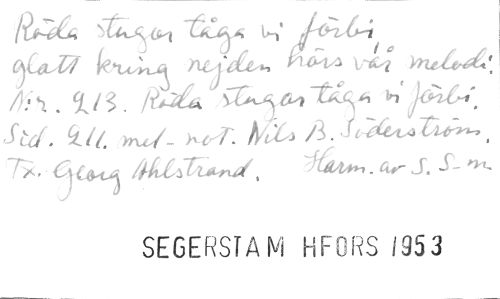 Röda stugor tåga vi förbi,
glatt kring nejden hörs vår melodi.
Nr. 213. Röda stugor tåga vi förbi.
Sid. 211. mel-not. Nils B. Söderström.
Tx. Georg Ahlstrand. Harm. av S. S-m
SEGERSTAM HFORS 1953